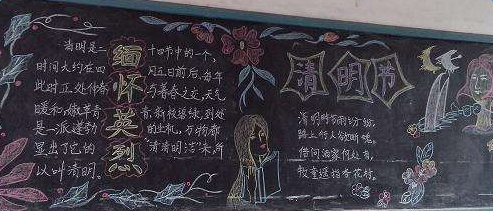 缅怀英烈
清明是二十四节中的一个,
时间大约在四月五日前后,每年
此时正处仲春与暮春之交,天气
暖和,嫩草青青,新枝凝绿,到处
是一派蓬勃的生机,万物都
显出了它的“清清明洁”,所
以叫清明。
清明节
清明时节雨纷纷,
路上行人欲断魂。
借问酒家何处有,
牧童遥指杏花村。